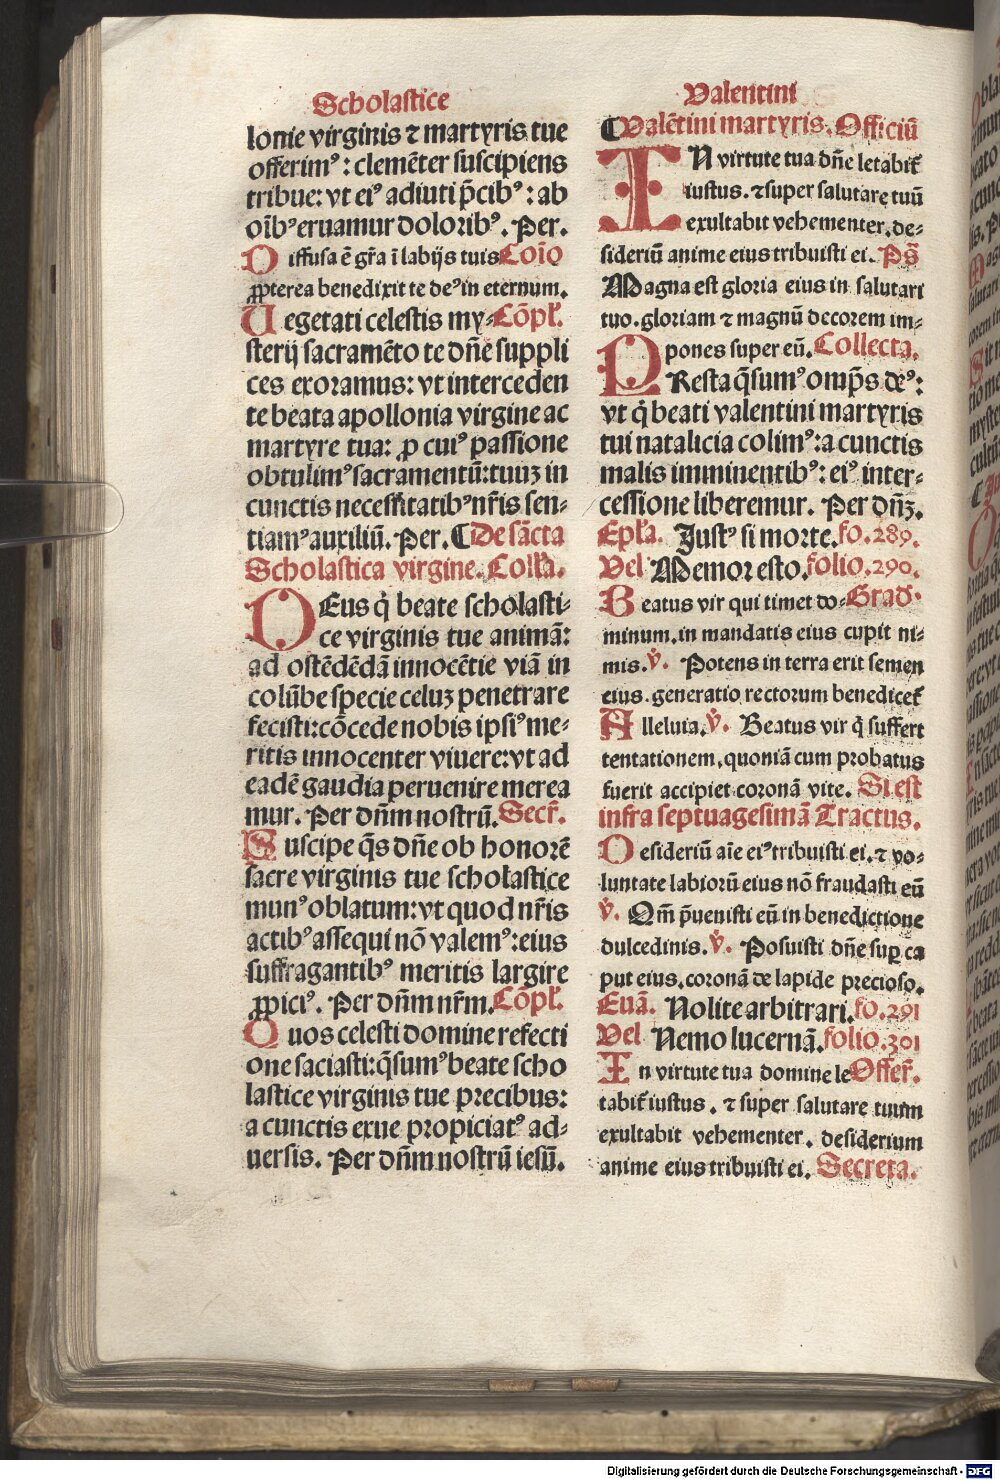 Scholastice
lonie virginis ⁊ martyris tue
offerimꝰ: clemēter suscipiens
tribue: vt eiꝰ adiuti p̄cibꝰ: ab
oībꝰ eruamur doloribꝰ. Per.
Diffusa ē gr̄a ī labijs tuis Coīo
ꝓpterea benedixit te deꝰ in eternum.
Vegetati celestis my⸗ Cōpl̄.
sterij sacramēto te dn̄e suppli
ces exoramus: vt interceden
te beata apollonia virgine ac
martyre tua: ꝓ cuiꝰ passione
obtulimꝰ sacramentū: tuuꝫ in
cunctis necessitatibꝰ nr̄is sen⸗
tiamꝰ auxiliū. Per. ¶ De sācta
Scholastica virgine. Coll̄a.
DEus q̇ beate scholasti⸗
ce virginis tue animā:
ad ostēdēdā innocētie viā in
colūbe specie celuꝫ penetrare
fecisti: cōcede nobis ipsiꝰ me⸗
ritis innocenter viuere: vt ad
eadē gaudia peruenire merea
mur. Per dn̄m nostrū. Secr̄.
Suscipe q̄s dn̄e ob honorē
sacre virginis tue scholastice
munꝰ oblatum: vt quod nr̄is
actibꝰ assequi nō valemꝰ: eius
suffragantibꝰ meritis largire
ꝓpiciꝰ. Per dn̄m nr̄m. Cōpl̄.
Quos celesti domine refecti
one saciasti: q̄sumꝰ beate scho
lastice virginis tue precibus:
a cunctis exue propiciatꝰ ad⸗
uersis. Per dn̄m nostrū iesū.
Valentini
¶ Valētini martyris. Officiū
IN virtute tua dn̄e letabit̄
iustus. ⁊ super salutare tuū
exultabit vehementer. de⸗
sideriū anime eius tribuisti ei. Ps̄
Magna est gloria eius in salutari
tuo. gloriam ⁊ magnū decorem im⸗
pones super eū. Collecta.
PResta q̄sumꝰ omp̄s deꝰ:
vt q̇ beati valentini martyris
tui natalicia colimꝰ: a cunctis
malis imminentibꝰ: eiꝰ inter⸗
cessione liberemur. Per dn̄ꝫ.
Epl̄a. Justꝰ si morte. fo. 289.
Vel Memor esto. folio. 290.
Beatus vir qui timet do⸗ Grad̄.
minum. in mandatis eius cupit ni⸗
mis. v̇. Potens in terra erit semen
eius. generatio rectorum benedicet̄
Alleluia. v̇. Beatus vir q̇ suffert
tentationem. quoniā cum probatus
fuerit accipiet coronā vite. Si est
infra septuagesimā Tractus.
Desideriū aīe eiꝰ tribuisti ei. ⁊ vo⸗
luntate labiorū eius nō fraudasti eū
v̇. Qm̄ p̄uenisti eū in benedictione
dulcedinis. v̇. Posuisti dn̄e suꝑ ca
put eius. coronā de lapide precioso.
Euā. Nolite arbitrari. fo. 291
Vel Nemo lucernā. folio. 301
In virtute tua domine le Offer̄.
tabit̄ iustus. ⁊ super salutare tuum
exultabit vehementer. desiderium
anime eius tribuisti ei. Secreta.
Digitalisierung gefördert durch die Deutsche Forschungsgemeinschaft - DFG